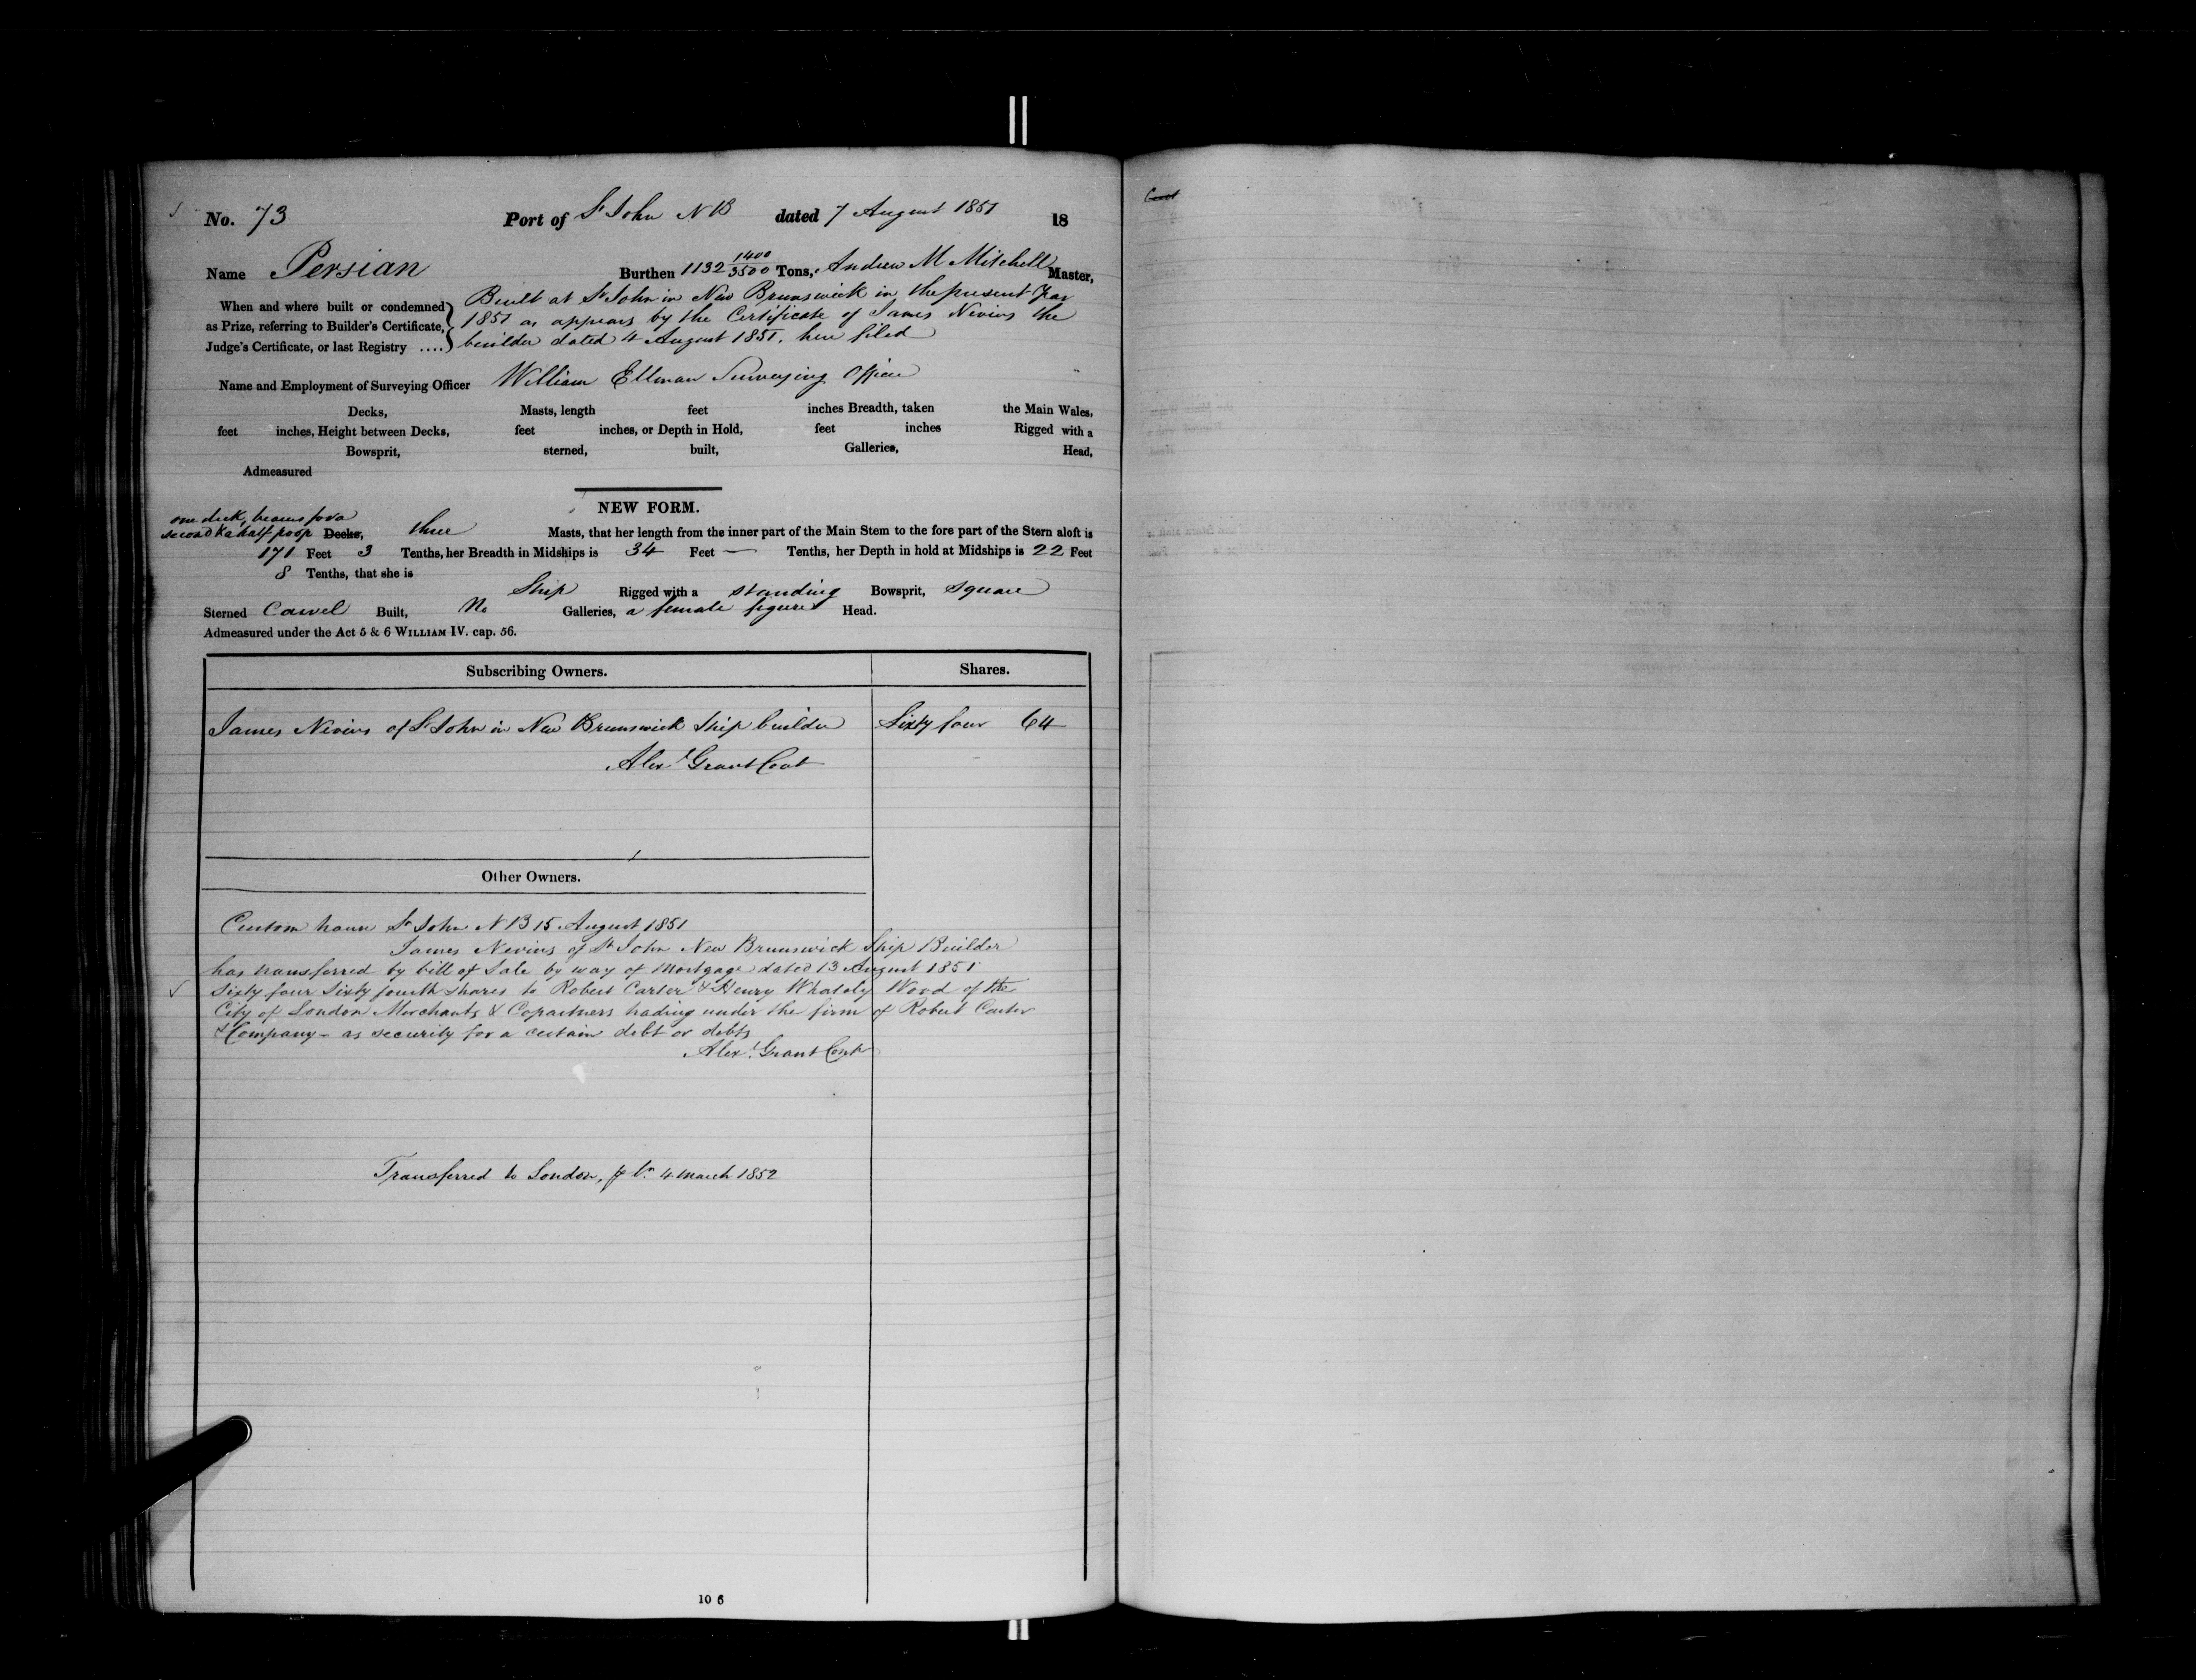 No. 73 Port of St John NB dated 7 August 1851 18
Name Persian Burthen 1132 1400/3500 Tons, Andrew M Mitchell Master,
When and where built or condemned as Prize, referring to Builder's Certificate, Judge's Certificate, or last Registry ....
Built at St John in New Brunswick in the present Year
1851 as appears by the Certificate of James Nevins the
builder dated 4 August 1851. here filed
Name and Employment of Surveying Officer William Ellman Surveying Officer
Decks, Masts, length feet inches Breadth, taken the Main Wales,
feet inches, Height between Decks, feet inches, or Depth in Hold, feet inches Rigged with a
Bowsprit, sterned, built, Galleries, Head,
Admeasured
NEW FORM.
one deck, beams for a
second & a half poop Decks, three Masts, that her length from the inner part of the Main Stem to the fore part of the Stern aloft is
171 Feet 3 Tenths, her Breadth in Midships is 34 Feet — Tenths, her Depth in hold at Midships is 22 Feet
8 Tenths, that she is
Ship Rigged with a standing Bowsprit, square
Sterned Carvel Built, No Galleries, a female figure Head.
Admeasured under the Act 5 & 6 WILLIAM IV. cap. 56.
Subscribing Owners. Shares.
James Nevins of St John in New Brunswick Ship builder Sixty four 64
Alexr Grant Cont
Other Owners.
Custom house St John NB 15 August 1851
James Nevins of St John New Brunswick Ship Builder
has transferred by bill of Sale by way of Mortgage dated 13 August 1851
Sixty four Sixty fourth shares to Robert Carter & Henry Whately Wood of the
City of London Merchants & Copartners trading under the firm of Robert Carter
& Company - as security for a certain debt or debts
Alexr Grant Cont
Transferred to London, 4 March 1852
10 6